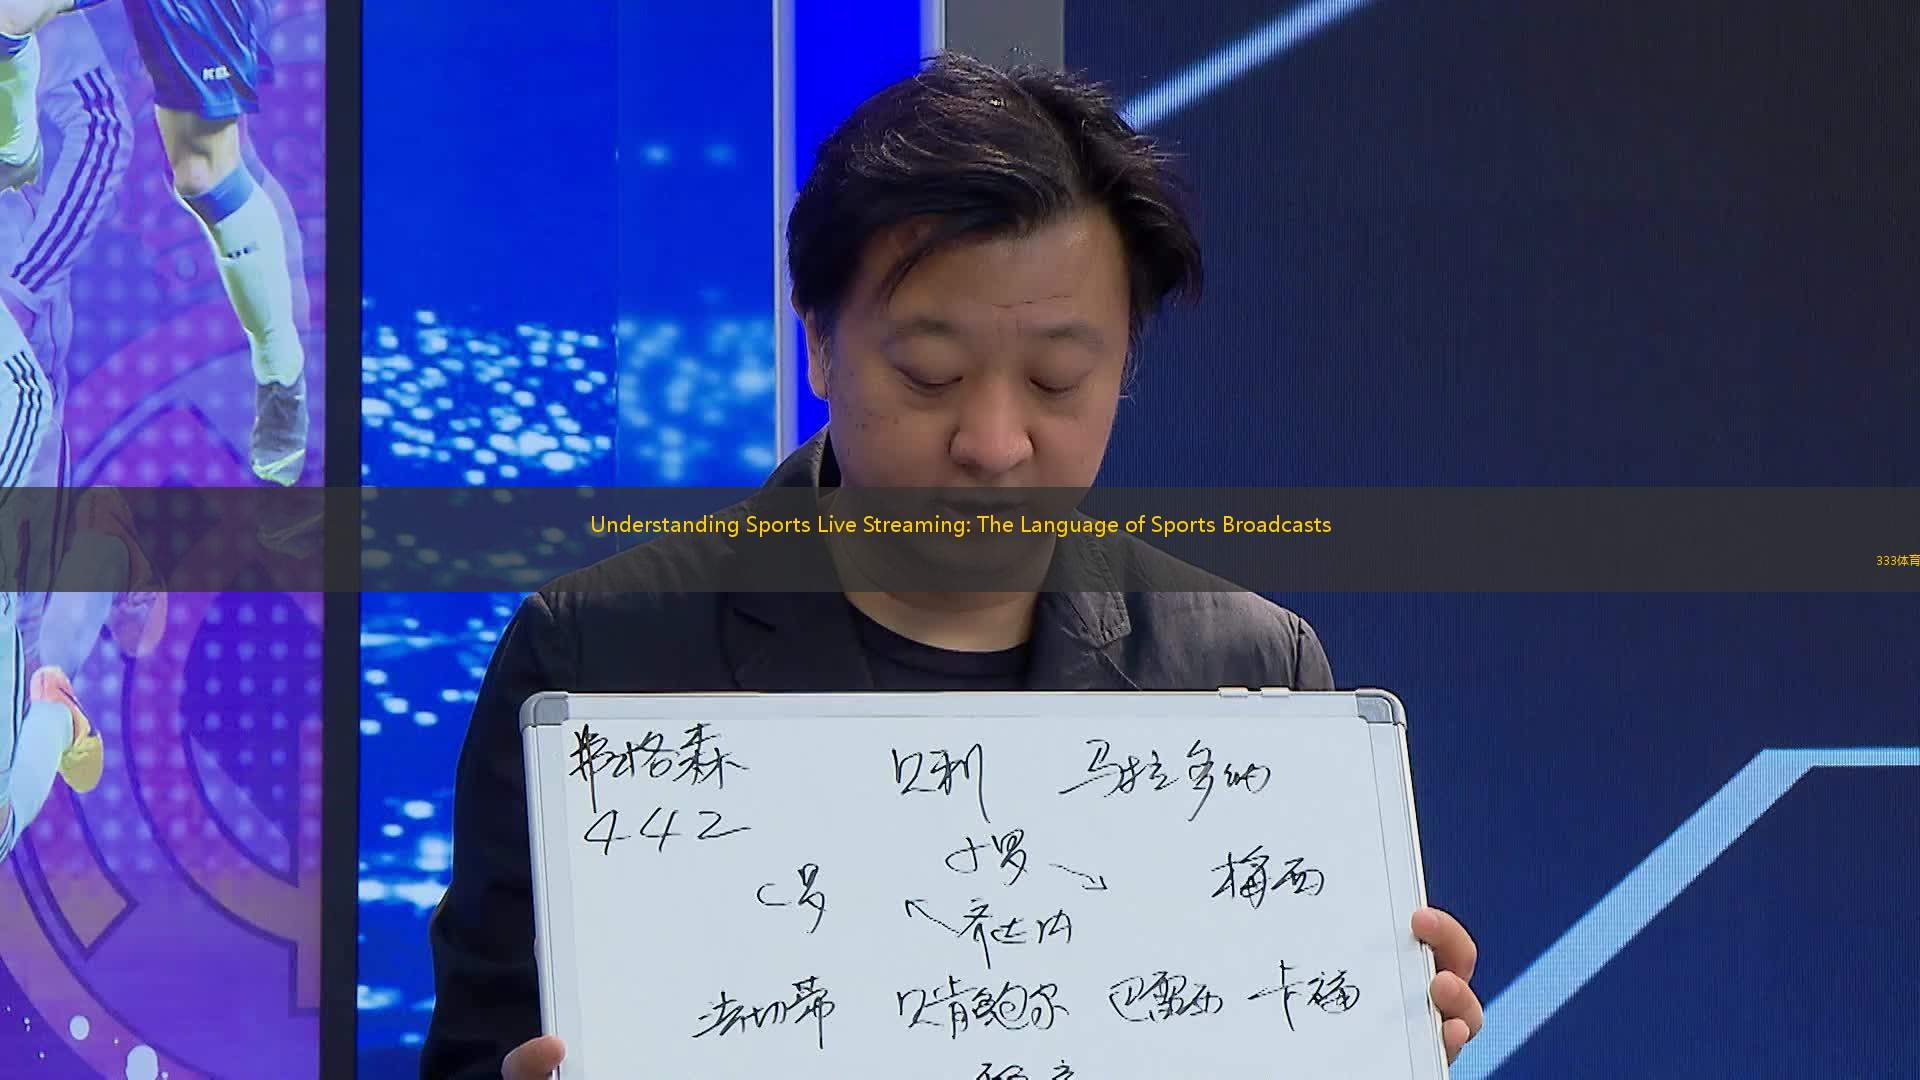 Understanding Sports Live Streaming: The Language of Sports Broadcasts
333体育
弗格森 贝利 马拉多纳
442
小罗
C罗 梅西
齐达内
法切蒂 贝肯鲍尔 巴雷西 卡福